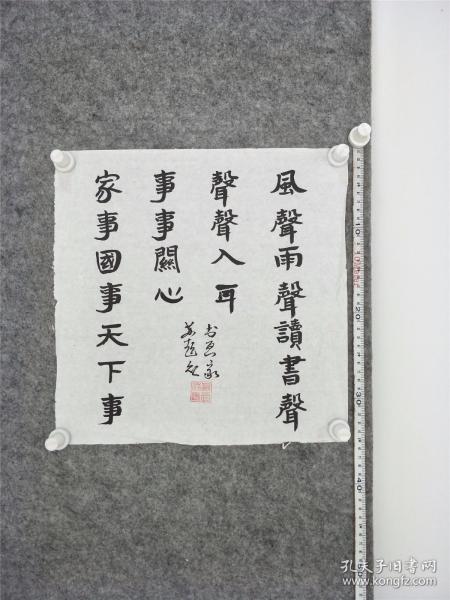 風聲雨聲讀書聲
聲聲入耳
家事國事天下事
事事關心
10
20
30
40
孔夫子旧书网
www.kongfz.com